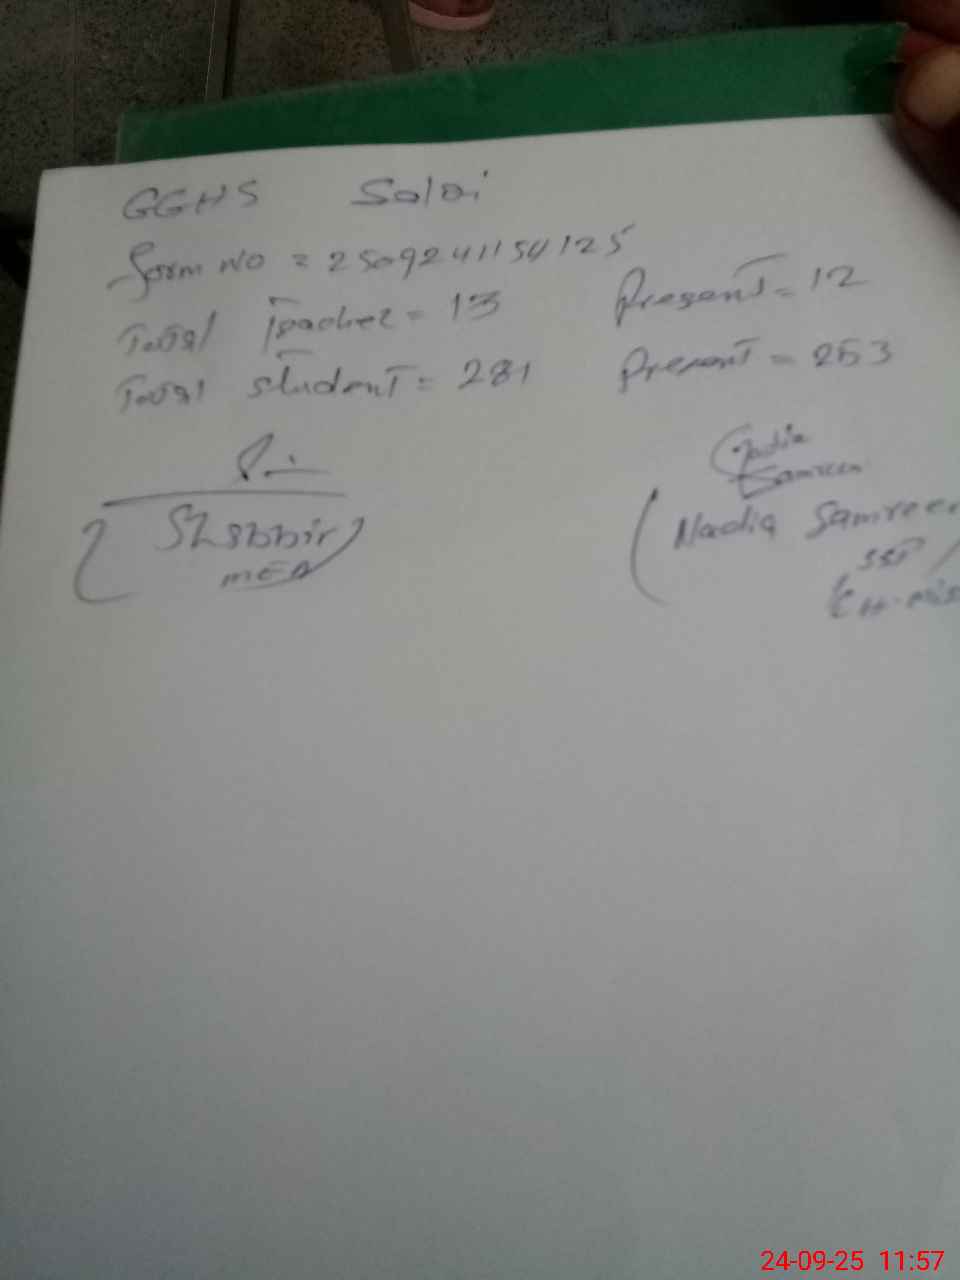 GGHS Saloi
form NO = 2509241154125
Total Teacher = 13 Present = 12
Total Student = 281 Present = 253
Nadia
Samreen
(Shabbir)
MEA
(Nadia Samreen
SST
24-09-25 11:57